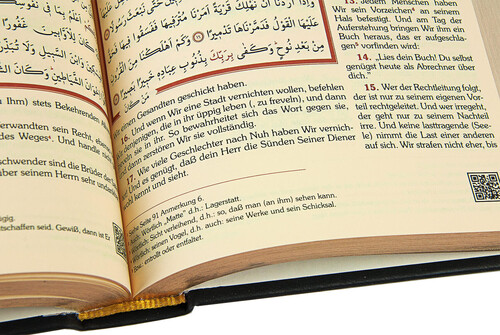 نُفُوسِكُمْ
غَفُورًا
وَابْنَ السَّبِيلِ وَلَا
الشَّيَاطِينِ وَكَانَ
ihm) stets Bekehrenden
erwandten sein Recht, ebenso
des Weges⁵. Und handle nicht
schwender sind die Brüder der
seinem Herrn sehr undank
gig.
tschaffen seid. Gewiß, dann ist Er
وَإِذَا أَرَدْنَا أَنْ نُهْلِكَ قَرْيَةً أَمَرْنَا مُتْرَفِيهَا فَفَسَقُوا فِيهَا
عَلَيْهَا الْقَوْلُ فَدَمَّرْنَاهَا تَدْمِيرًا ﴿١٦﴾ وَكَمْ أَهْلَكْنَا مِنَ الْقُرُونِ
مِنْ بَعْدِ نُوحٍ وَكَفَى بِرَبِّكَ بِذُنُوبِ عِبَادِهِ خَبِيرًا بَصِيرًا
مَنْ كَانَ
einen Gesandten geschickt haben.
16. Und wenn Wir eine Stadt vernichten wollen, befehlen
denjenigen, die in ihr üppig leben (, zu freveln), und dann
freveln sie in ihr. So bewahrheitet sich das Wort gegen sie,
und dann zerstören Wir sie vollständig.
17. Wie viele Geschlechter nach Nuh haben Wir vernich-
Und es genügt, daß dein Herr die Sünden Seiner Diener
wohl kennt und sieht.
13. Jedem Menschen haben
Wir sein Vorzeichen⁴ an seinem
Hals befestigt. Und am Tag der
Auferstehung bringen Wir ihm ein
Buch heraus, das er aufgeschla-
gen⁵ vorfinden wird:
14. „Lies dein Buch! Du selbst
genügst heute als Abrechner über
dich.”
15. Wer der Rechtleitung folgt,
der ist nur zu seinem eigenen Vor-
teil rechtgeleitet. Und wer irregeht,
der geht nur zu seinem Nachteil
irre. Und keine lasttragende (See-
le) nimmt die Last einer anderen
auf sich. Wir strafen nicht eher, bis
Siehe Seite 91 Anmerkung 6.
Wörtlich „Matte” d.h.: Lagerstatt.
Wörtlich: Sicht verleihend, d.h.: so, daß man (an ihm) sehen kann.
Wörtlich: seinen Vogel, d.h. auch: seine Werke und sein Schicksal.
entrollt oder entfaltet.